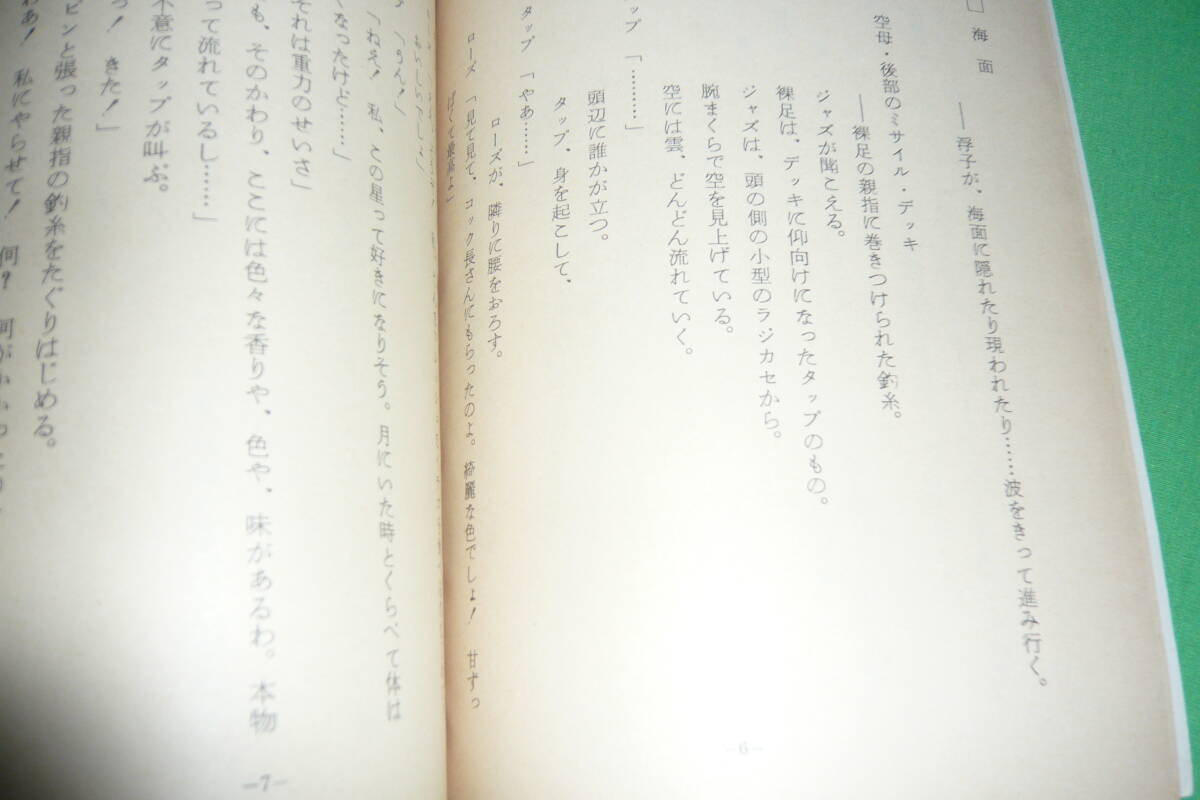 □ 海面
――浮子が、海面に隠れたり現われたり……波をきって進み行く。
空母・後部のミサイル・デッキ
――裸足の親指に巻きつけられた釣糸。
ジャズが聞こえる。
裸足は、デッキに仰向けになったタップのもの。
ジャズは、頭の側の小型のラジカセから。
腕まくらで空を見上げている。
空には雲、どんどん流れていく。
ップ 「………」
頭辺に誰かが立つ。
タップ、身を起こして、
タップ 「やあ……」
ローズが、隣りに腰をおろす。
ローズ 「見て見て、コック長さんにもらったのよ。綺麗な色でしょ! 甘ずっ
ぱくて最高よ」
「うん!」
「ねえ! 私、この星って好きになりそう。月にいた時とくらべて体は
くなったけど……」
それは重力のせいさ」
も、そのかわり、ここには色々な香りや、色や、味があるわ。本物
って流れているし……」
不意にタップが叫ぶ。
っ! きた!」
ピンと張った親指の釣糸をたぐりはじめる。
わあ! 私にやらせて! 何?
―6―
―7―